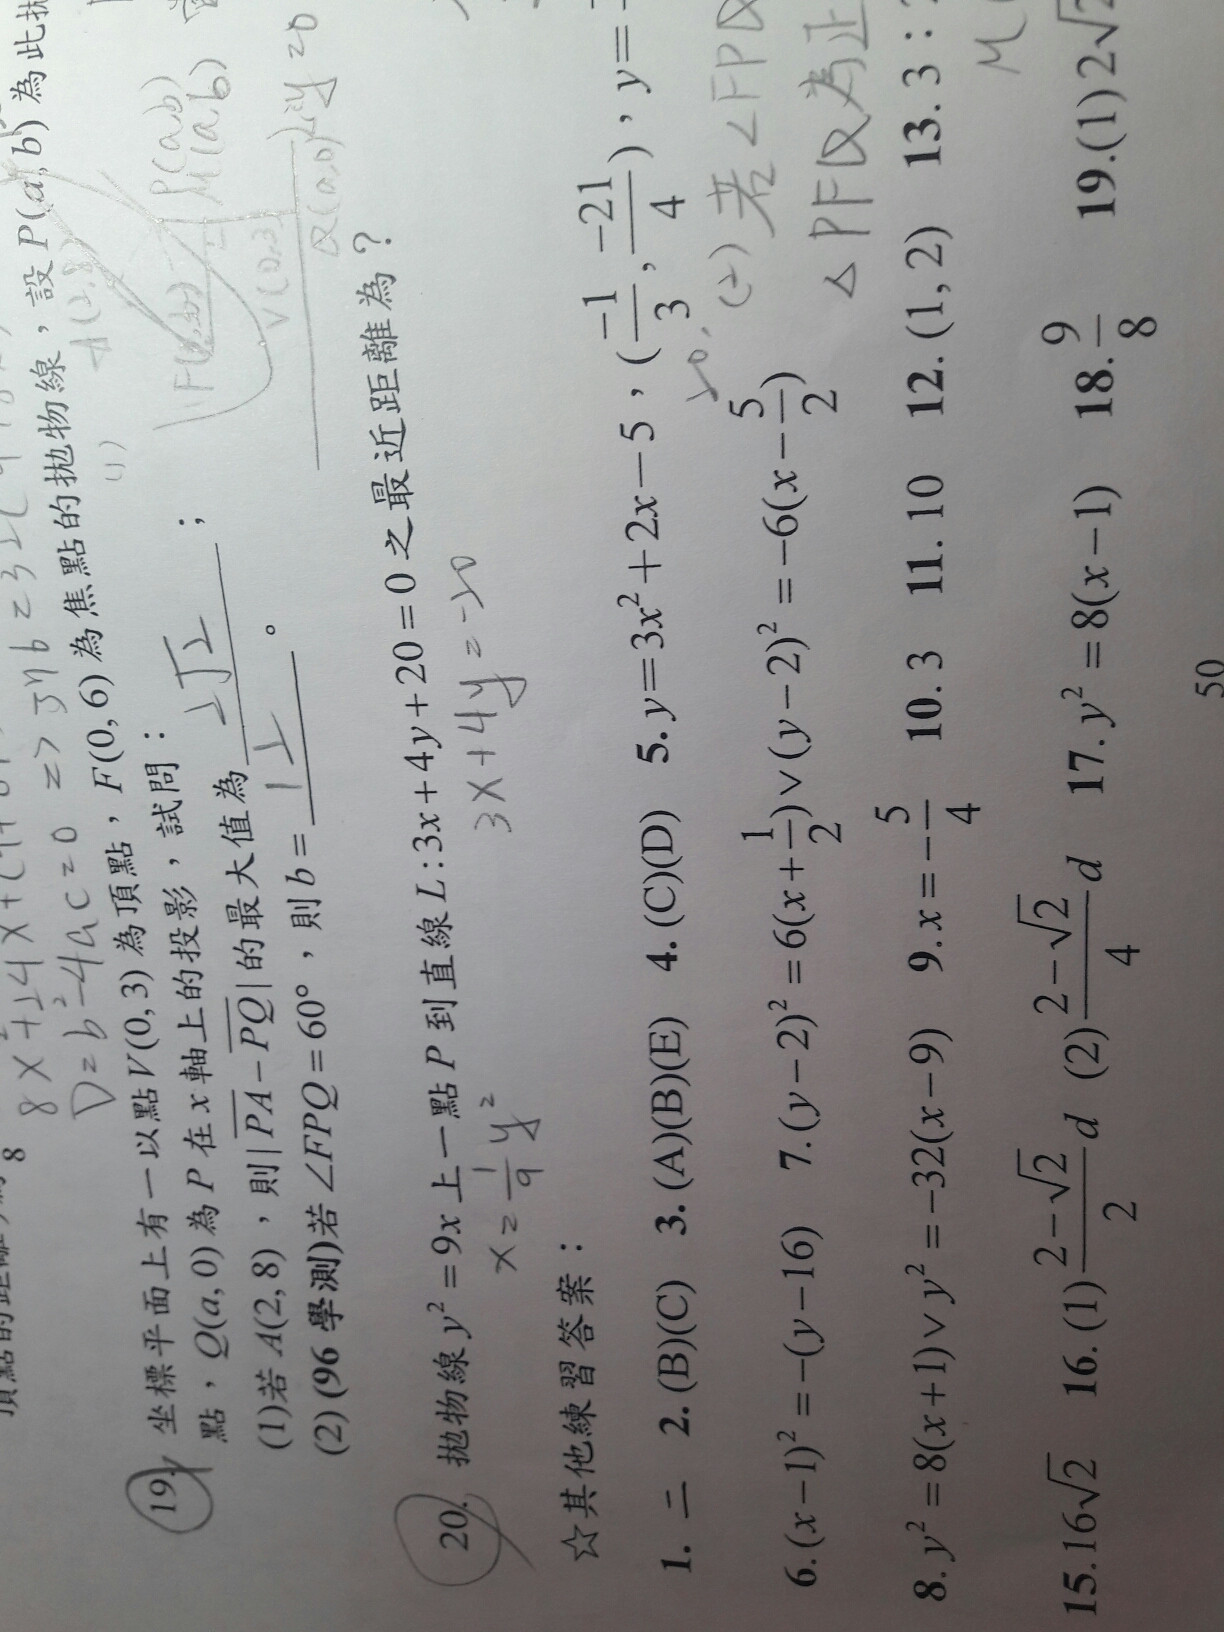 8x²+24x+(
D=b²-4ac=0 => 
19. 坐標平面上有一以點V(0,3)為頂點,F(0,6)為焦點的拋物線,設P(a,b)為此拋
點,Q(a,0)為P在x軸上的投影,試問:
(1)若A(2,8),則|PA-PQ|的最大值為 2√2 ;
(2)(96學測)若∠FPQ=60°,則b= 12 。
(1)
A(2,8)
P(a,b)
V(0,3)
Q(a,0)
y=0
20. 拋物線y²=9x上一點P到直線L:3x+4y+20=0之最近距離為?
x=1/9 y²
3x+4y=-20
☆其他練習答案:
1. 二 2.(B)(C) 3.(A)(B)(E) 4.(C)(D) 5.y=3x²+2x-5,(-1/3,-21/4),y=
(2)若∠FPQ
△PFQ為正
6.(x-1)²=-(y-16) 7.(y-2)²=6(x+1/2)∨(y-2)²=-6(x-5/2)
8.y²=8(x+1)∨y²=-32(x-9) 9.x=-5/4 10.3 11.10 12.(1,2) 13.3:
15.16√2 16.(1)(2-√2)/2 d (2)(2-√2)/4 d 17.y²=8(x-1) 18.9/8 19.(1)2√2
50